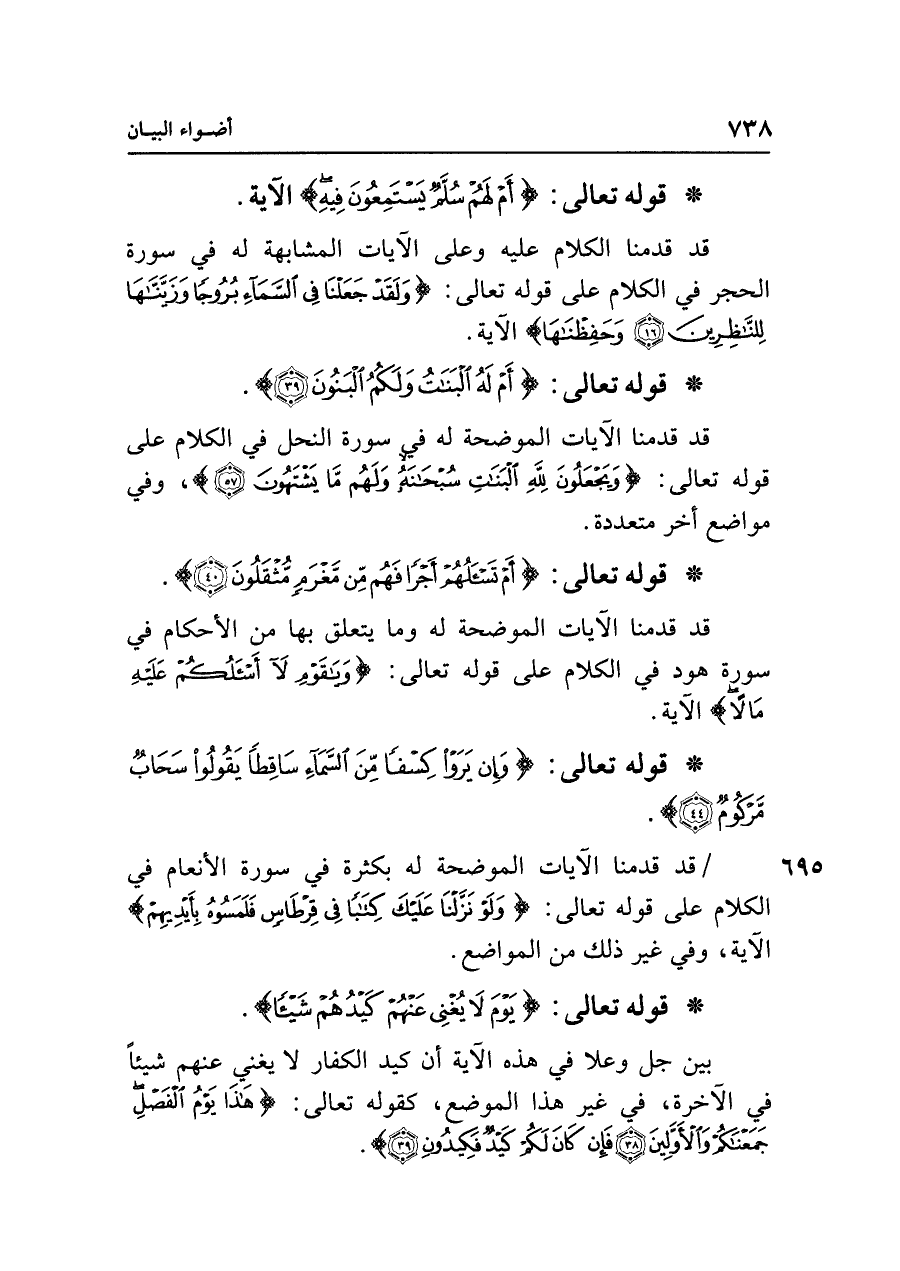 ٧٣٨ أضواء البيان
* قوله تعالى: ﴿أَمْ لَهُمْ سُلَّمٌ يَسْتَمِعُونَ فِيهِۖ﴾ الآية.
قد قدمنا الكلام عليه وعلى الآيات المشابهة له في سورة
الحجر في الكلام على قوله تعالى: ﴿وَلَقَدْ جَعَلْنَا فِي السَّمَآءِ بُرُوجًا وَزَيَّنَّٰهَا
لِلنَّٰظِرِينَ ١٦ وَحَفِظْنَٰهَا﴾ الآية.
* قوله تعالى: ﴿أَمْ لَهُ الْبَنَٰتُ وَلَكُمُ الْبَنُونَ ٣٩﴾.
قد قدمنا الآيات الموضحة له في سورة النحل في الكلام على
قوله تعالى: ﴿وَيَجْعَلُونَ لِلَّهِ الْبَنَٰتِ سُبْحَٰنَهُۥ وَلَهُم مَّا يَشْتَهُونَ ٥٧﴾، وفي
مواضع أخر متعددة.
* قوله تعالى: ﴿أَمْ تَسْـَٔلُهُمْ أَجْرًا فَهُم مِّن مَّغْرَمٍ مُّثْقَلُونَ ٤٠﴾.
قد قدمنا الآيات الموضحة له وما يتعلق بها من الأحكام في
سورة هود في الكلام على قوله تعالى: ﴿وَيَٰقَوْمِ لَآ أَسْـَٔلُكُمْ عَلَيْهِ
مَالًاۖ﴾ الآية.
* قوله تعالى: ﴿وَإِن يَرَوْا۟ كِسْفًا مِّنَ السَّمَآءِ سَاقِطًا يَقُولُوا۟ سَحَابٌ
مَّرْكُومٌ ٤٤﴾.
٦٩٥ / قد قدمنا الآيات الموضحة له بكثرة في سورة الأنعام في
الكلام على قوله تعالى: ﴿وَلَوْ نَزَّلْنَا عَلَيْكَ كِتَٰبًا فِي قِرْطَاسٍ فَلَمَسُوهُ بِأَيْدِيهِمْ﴾
الآية، وفي غير ذلك من المواضع.
* قوله تعالى: ﴿يَوْمَ لَا يُغْنِي عَنْهُمْ كَيْدُهُمْ شَيْـًٔا﴾.
بين جل وعلا في هذه الآية أن كيد الكفار لا يغني عنهم شيئاً
في الآخرة، في غير هذا الموضع، كقوله تعالى: ﴿هَٰذَا يَوْمُ الْفَصْلِۖ
جَمَعْنَٰكُمْ وَالْأَوَّلِينَ ٣٨ فَإِن كَانَ لَكُمْ كَيْدٌ فَكِيدُونِ ٣٩﴾.